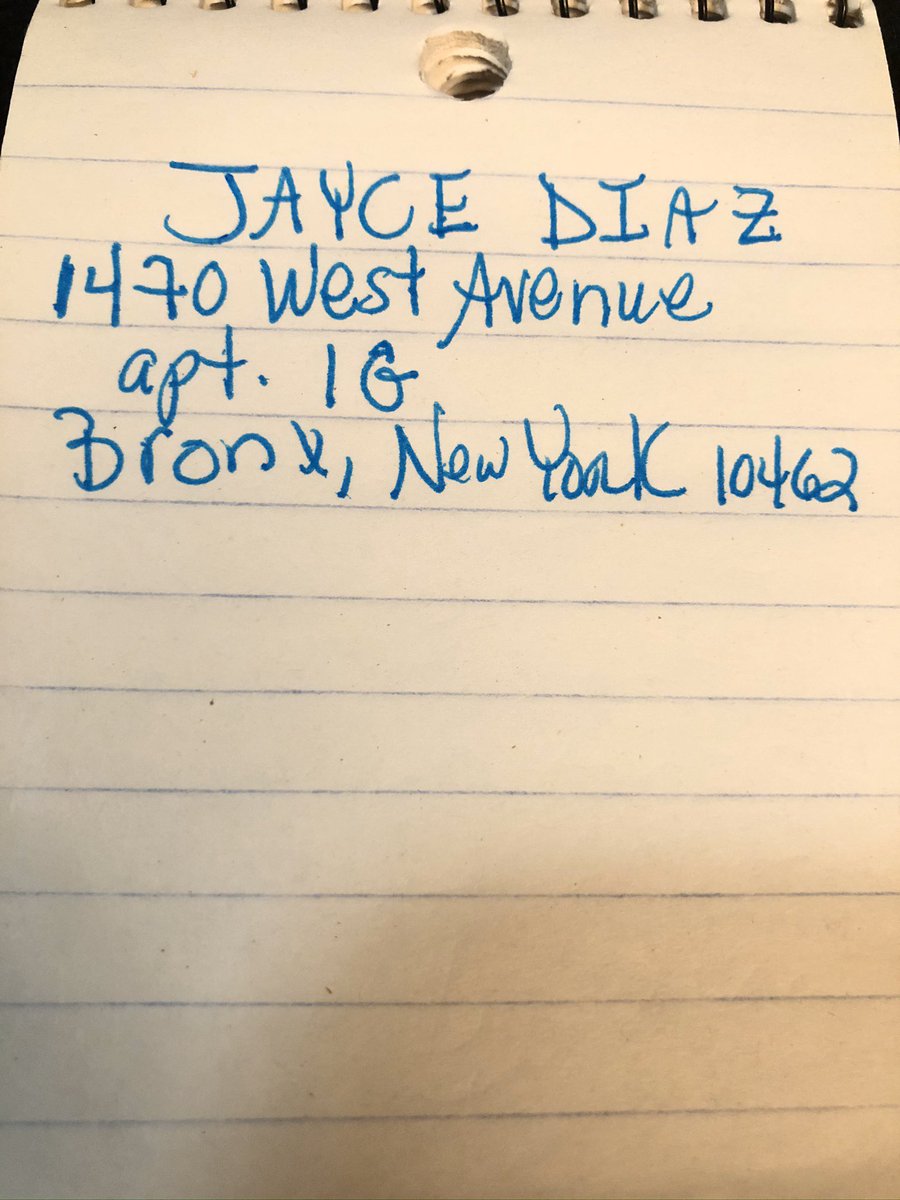 JAYCE DIAZ
1470 West Avenue
apt. 1G
Bronx, New York 10462